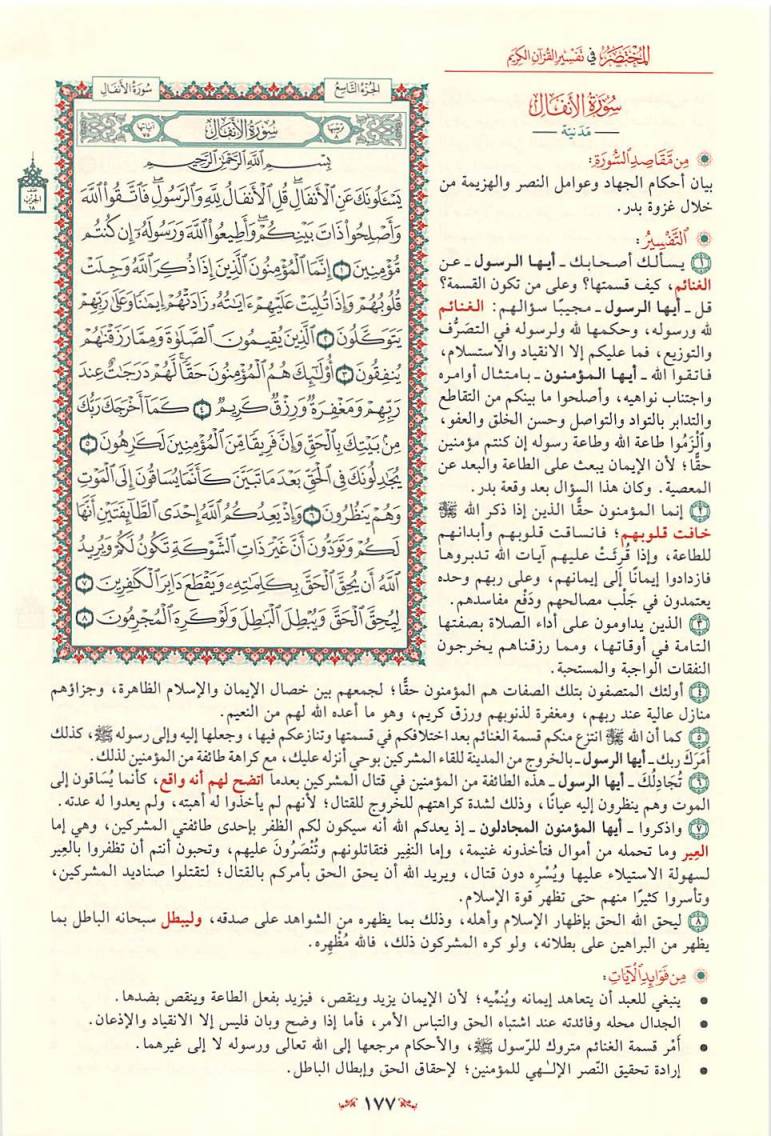 المختصر في تفسير القرآن الكريم
الجزء التاسع
سورة الأنفال
ترتيبها ٨
سورة الأنفال
آياتها ٧٥
بسم الله الرحمن الرحيم
يَسْـَٔلُونَكَ عَنِ ٱلْأَنفَالِۖ قُلِ ٱلْأَنفَالُ لِلَّهِ وَٱلرَّسُولِۖ فَٱتَّقُوا۟ ٱللَّهَ
وَأَصْلِحُوا۟ ذَاتَ بَيْنِكُمْۖ وَأَطِيعُوا۟ ٱللَّهَ وَرَسُولَهُۥٓ إِن كُنتُم
مُّؤْمِنِينَ ١ إِنَّمَا ٱلْمُؤْمِنُونَ ٱلَّذِينَ إِذَا ذُكِرَ ٱللَّهُ وَجِلَتْ
قُلُوبُهُمْ وَإِذَا تُلِيَتْ عَلَيْهِمْ ءَايَـٰتُهُۥ زَادَتْهُمْ إِيمَـٰنًا وَعَلَىٰ رَبِّهِمْ
يَتَوَكَّلُونَ ٢ ٱلَّذِينَ يُقِيمُونَ ٱلصَّلَوٰةَ وَمِمَّا رَزَقْنَـٰهُمْ
يُنفِقُونَ ٣ أُو۟لَـٰٓئِكَ هُمُ ٱلْمُؤْمِنُونَ حَقًّاۚ لَّهُمْ دَرَجَـٰتٌ عِندَ
رَبِّهِمْ وَمَغْفِرَةٌ وَرِزْقٌ كَرِيمٌ ٤ كَمَآ أَخْرَجَكَ رَبُّكَ
مِنۢ بَيْتِكَ بِٱلْحَقِّ وَإِنَّ فَرِيقًا مِّنَ ٱلْمُؤْمِنِينَ لَكَـٰرِهُونَ ٥
يُجَـٰدِلُونَكَ فِى ٱلْحَقِّ بَعْدَ مَا تَبَيَّنَ كَأَنَّمَا يُسَاقُونَ إِلَى ٱلْمَوْتِ
وَهُمْ يَنظُرُونَ ٦ وَإِذْ يَعِدُكُمُ ٱللَّهُ إِحْدَى ٱلطَّآئِفَتَيْنِ أَنَّهَا
لَكُمْ وَتَوَدُّونَ أَنَّ غَيْرَ ذَاتِ ٱلشَّوْكَةِ تَكُونُ لَكُمْ وَيُرِيدُ
ٱللَّهُ أَن يُحِقَّ ٱلْحَقَّ بِكَلِمَـٰتِهِۦ وَيَقْطَعَ دَابِرَ ٱلْكَـٰفِرِينَ ٧
لِيُحِقَّ ٱلْحَقَّ وَيُبْطِلَ ٱلْبَـٰطِلَ وَلَوْ كَرِهَ ٱلْمُجْرِمُونَ ٨
سورة الأنفال
ـ مدنية ـ
من مقاصد السورة:
بيان أحكام الجهاد وعوامل النصر والهزيمة من
خلال غزوة بدر.
التفسير:
١ يسألك أصحابك ـ أيها الرسول ـ عن
الغنائم، كيف قسمتها؟ وعلى من تكون القسمة؟
قل ـ أيها الرسول ـ مجيبًا سؤالهم: الغنائم
لله ورسوله، وحكمها لله ولرسوله في التصَرُّف
والتوزيع، فما عليكم إلا الانقياد والاستسلام،
فاتقوا الله ـ أيها المؤمنون ـ بامتثال أوامره
واجتناب نواهيه، وأصلحوا ما بينكم من التقاطع
والتدابر بالتواد والتواصل وحسن الخلق والعفو،
والْزَمُوا طاعة الله وطاعة رسوله إن كنتم مؤمنين
حقًّا؛ لأن الإيمان يبعث على الطاعة والبعد عن
المعصية. وكان هذا السؤال بعد وقعة بدر.
٢ إنما المؤمنون حقًّا الذين إذا ذكر الله ﷻ
خافت قلوبهم؛ فانساقت قلوبهم وأبدانهم
للطاعة، وإذا قُرِئَتْ عليهم آيات الله تدبروها
فازدادوا إيمانًا إلى إيمانهم، وعلى ربهم وحده
يعتمدون في جَلْب مصالحهم ودَفْع مفاسدهم.
٣ الذين يداومون على أداء الصلاة بصفتها
التامة في أوقاتها، ومما رزقناهم يخرجون
النفقات الواجبة والمستحبة.
٤ أولئك المتصفون بتلك الصفات هم المؤمنون حقًّا؛ لجمعهم بين خصال الإيمان والإسلام الظاهرة، وجزاؤهم
منازل عالية عند ربهم، ومغفرة لذنوبهم ورزق كريم، وهو ما أعده الله لهم من النعيم.
٥ كما أن الله ﷻ انتزع منكم قسمة الغنائم بعد اختلافكم في قسمتها وتنازعكم فيها، وجعلها إليه وإلى رسوله ﷺ، كذلك
أمَرَكَ ربك ـ أيها الرسول ـ بالخروج من المدينة للقاء المشركين بوحي أنزله عليك، مع كراهة طائفة من المؤمنين لذلك.
٦ تُجَادِلُكَ ـ أيها الرسول ـ هذه الطائفة من المؤمنين في قتال المشركين بعدما اتضح لهم أنه واقع، كأنما يُسَاقون إلى
الموت وهم ينظرون إليه عيانًا، وذلك لشدة كراهتهم للخروج للقتال؛ لأنهم لم يأخذوا له أهبته، ولم يعدوا له عدته.
٧ واذكروا ـ أيها المؤمنون المجادلون ـ إذ يعدكم الله أنه سيكون لكم الظفر بإحدى طائفتي المشركين، وهي إما
العِير وما تحمله من أموال فتأخذونه غنيمة، وإما النفِير فتقاتلونهم وتُنْصَرُونَ عليهم، وتحبون أنتم أن تظفروا بالعِير
لسهولة الاستيلاء عليها ويُسْرِه دون قتال، ويريد الله أن يحق الحق بأمركم بالقتال؛ لتقتلوا صناديد المشركين،
وتأسروا كثيرًا منهم حتى تظهر قوة الإسلام.
٨ ليحق الله الحق بإظهار الإسلام وأهله، وذلك بما يظهره من الشواهد على صدقه، وليبطل سبحانه الباطل بما
يظهر من البراهين على بطلانه، ولو كره المشركون ذلك، فالله مُظْهِره.
من فوائد الآيات:
• ينبغي للعبد أن يتعاهد إيمانه ويُنمِّيه؛ لأن الإيمان يزيد وينقص، فيزيد بفعل الطاعة وينقص بضدها.
• الجدال محله وفائدته عند اشتباه الحق والتباس الأمر، فأما إذا وضح وبان فليس إلا الانقياد والإذعان.
• أَمْر قسمة الغنائم متروك للرّسول ﷺ، والأحكام مرجعها إلى الله تعالى ورسوله لا إلى غيرهما.
• إرادة تحقيق النّصر الإلـٰهي للمؤمنين؛ لإحقاق الحق وإبطال الباطل.
١٧٧